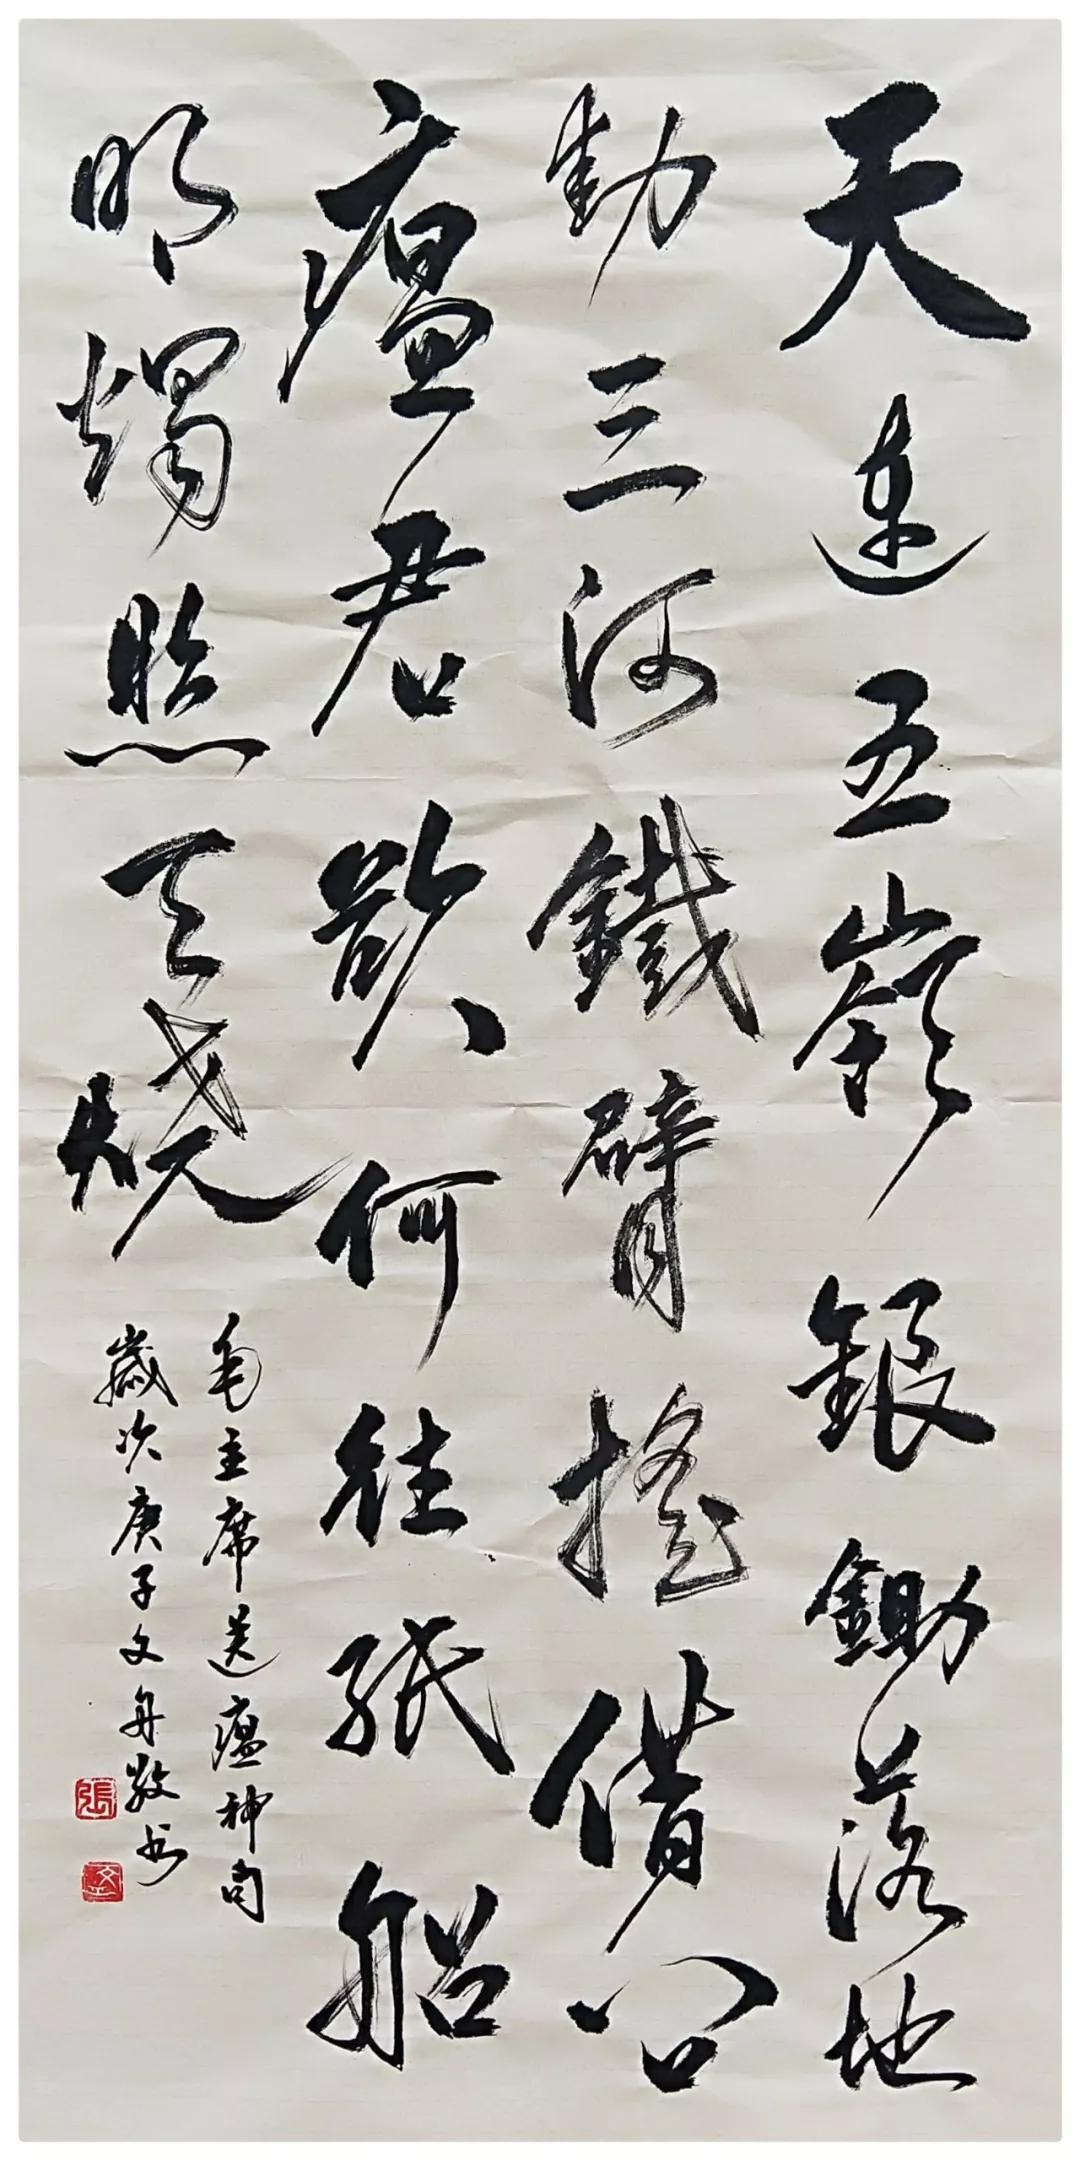 天連五嶺銀鋤落地
動三河鐵臂搖借問
瘟君欲何往紙船
明燭照天燒
毛主席送瘟神句
歲次庚子文舟敬书
張